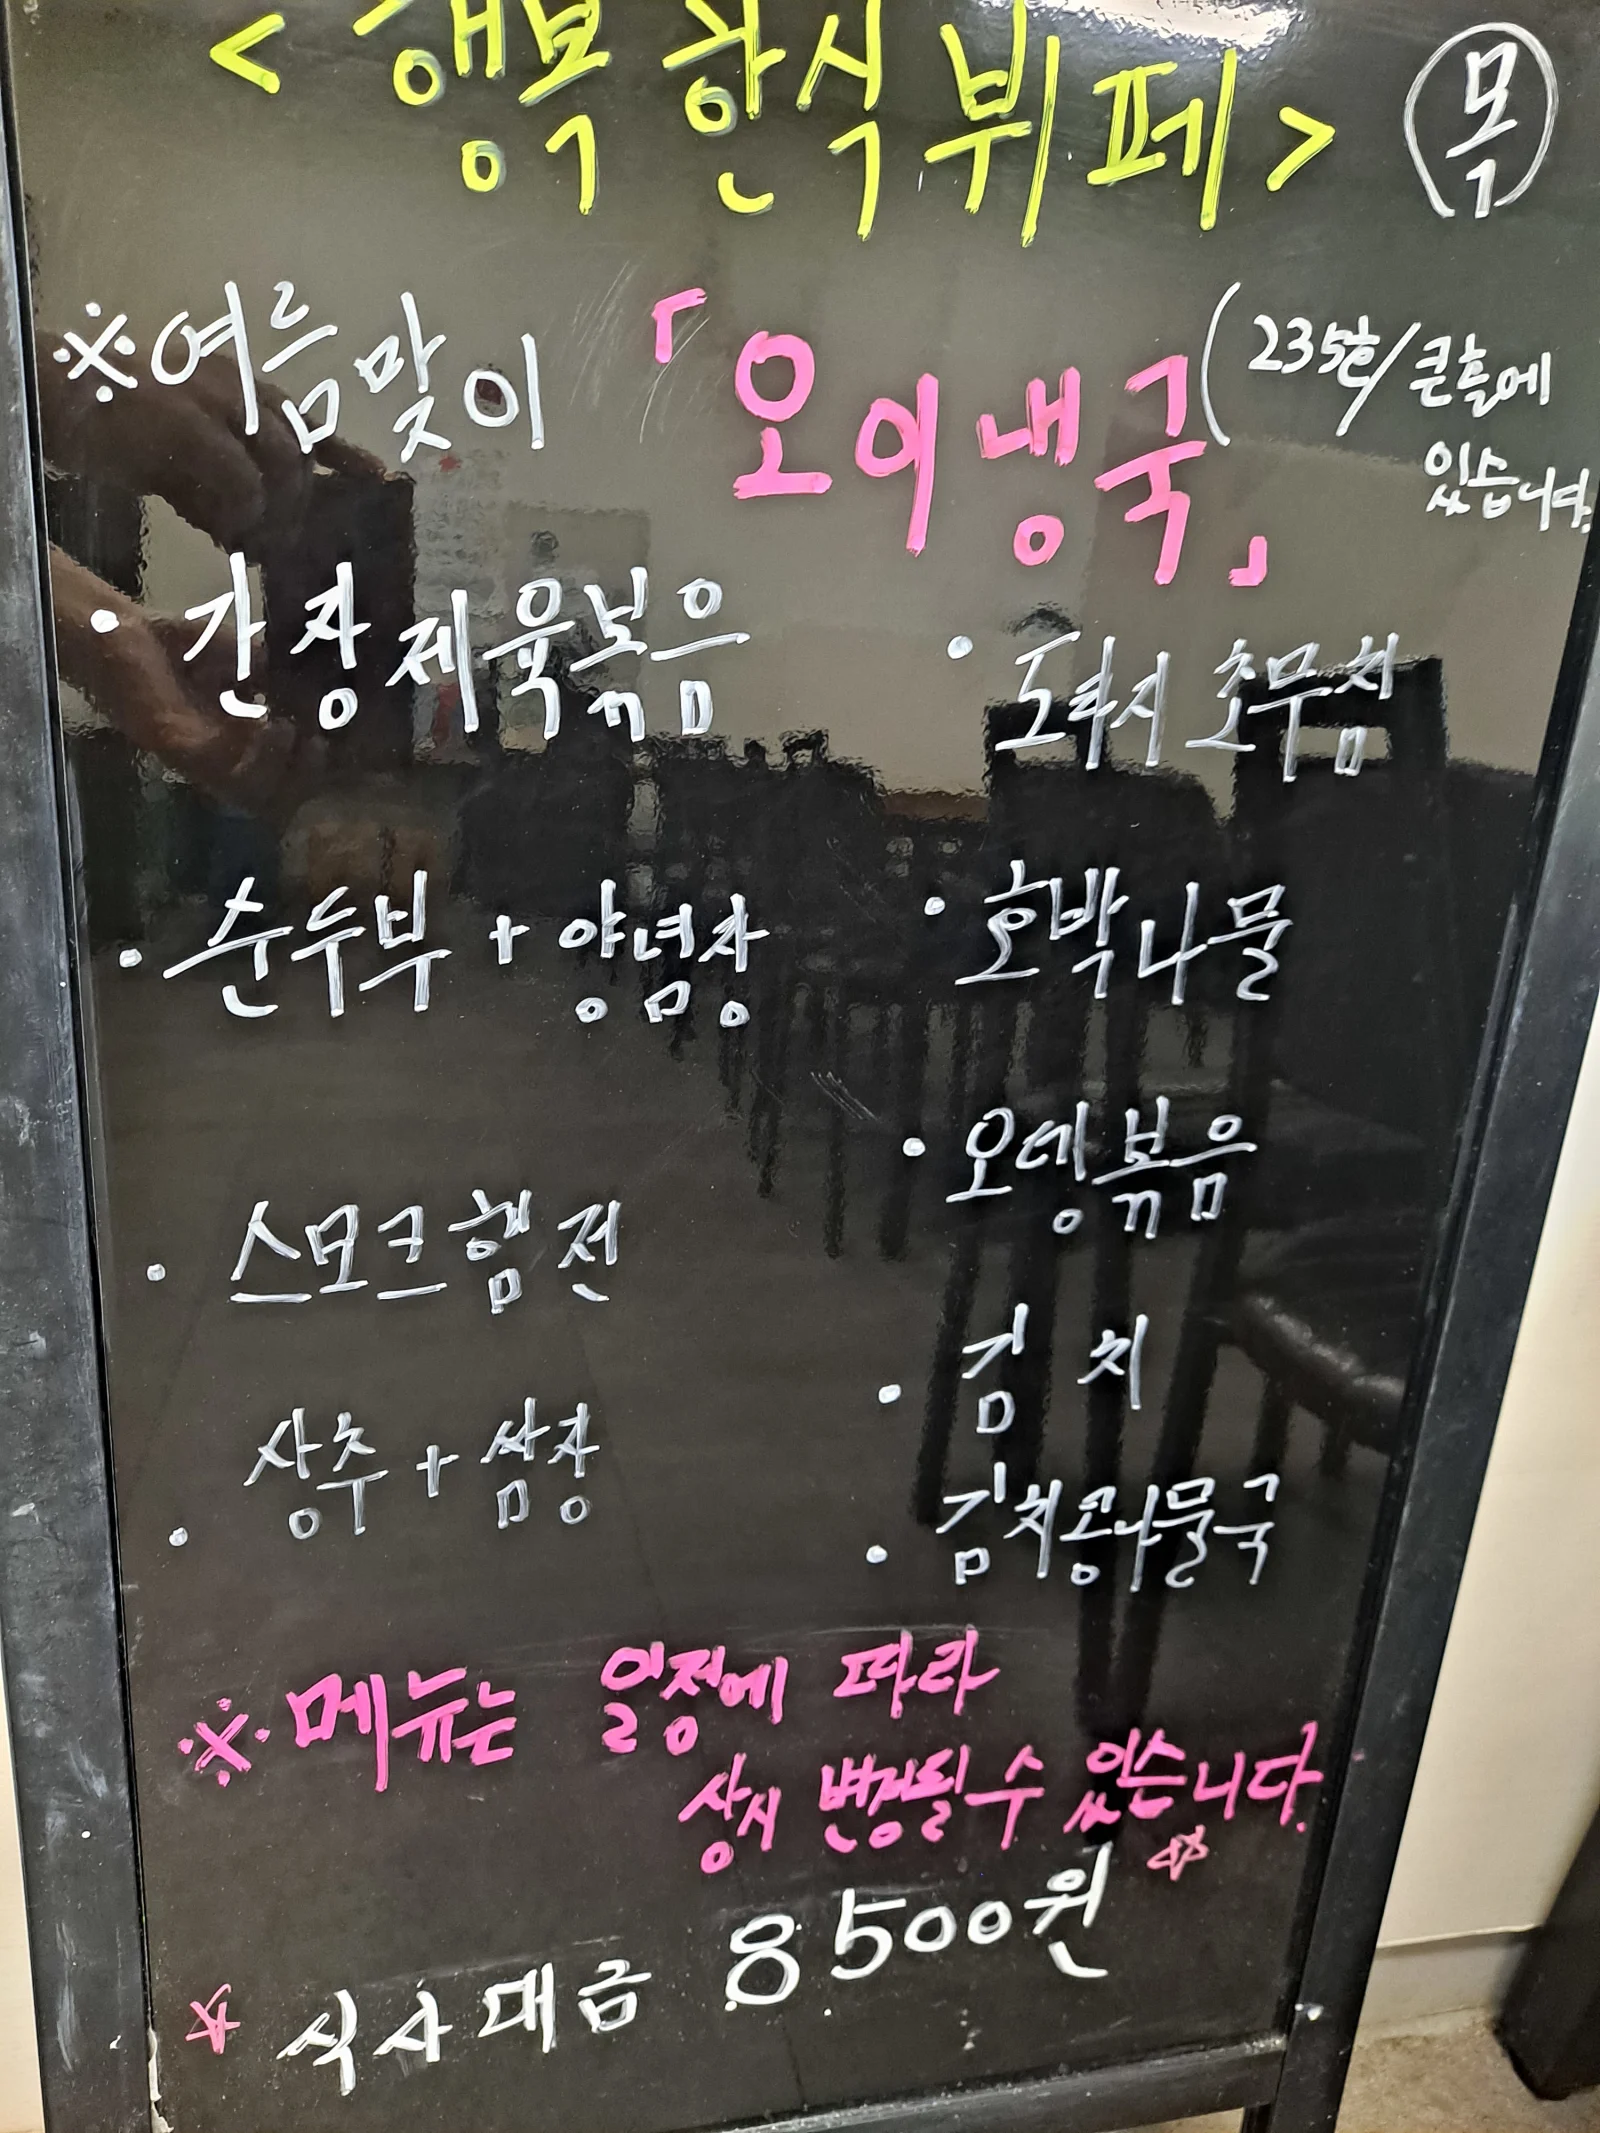 <행복 한식 뷔페> 목
※여름맞이 「오이냉국」 (235호/큰홀에
있습니다.
• 간장제육볶음
• 도라지 초무침
• 순두부 + 양념장
• 호박나물
• 오뎅볶음
• 스모크햄전
• 김 치
• 상추 + 쌈장
• 김치콩나물국
※메뉴는 일정에 따라
상시 변경될 수 있습니다.
☆ 식사대금 8500원 ☆